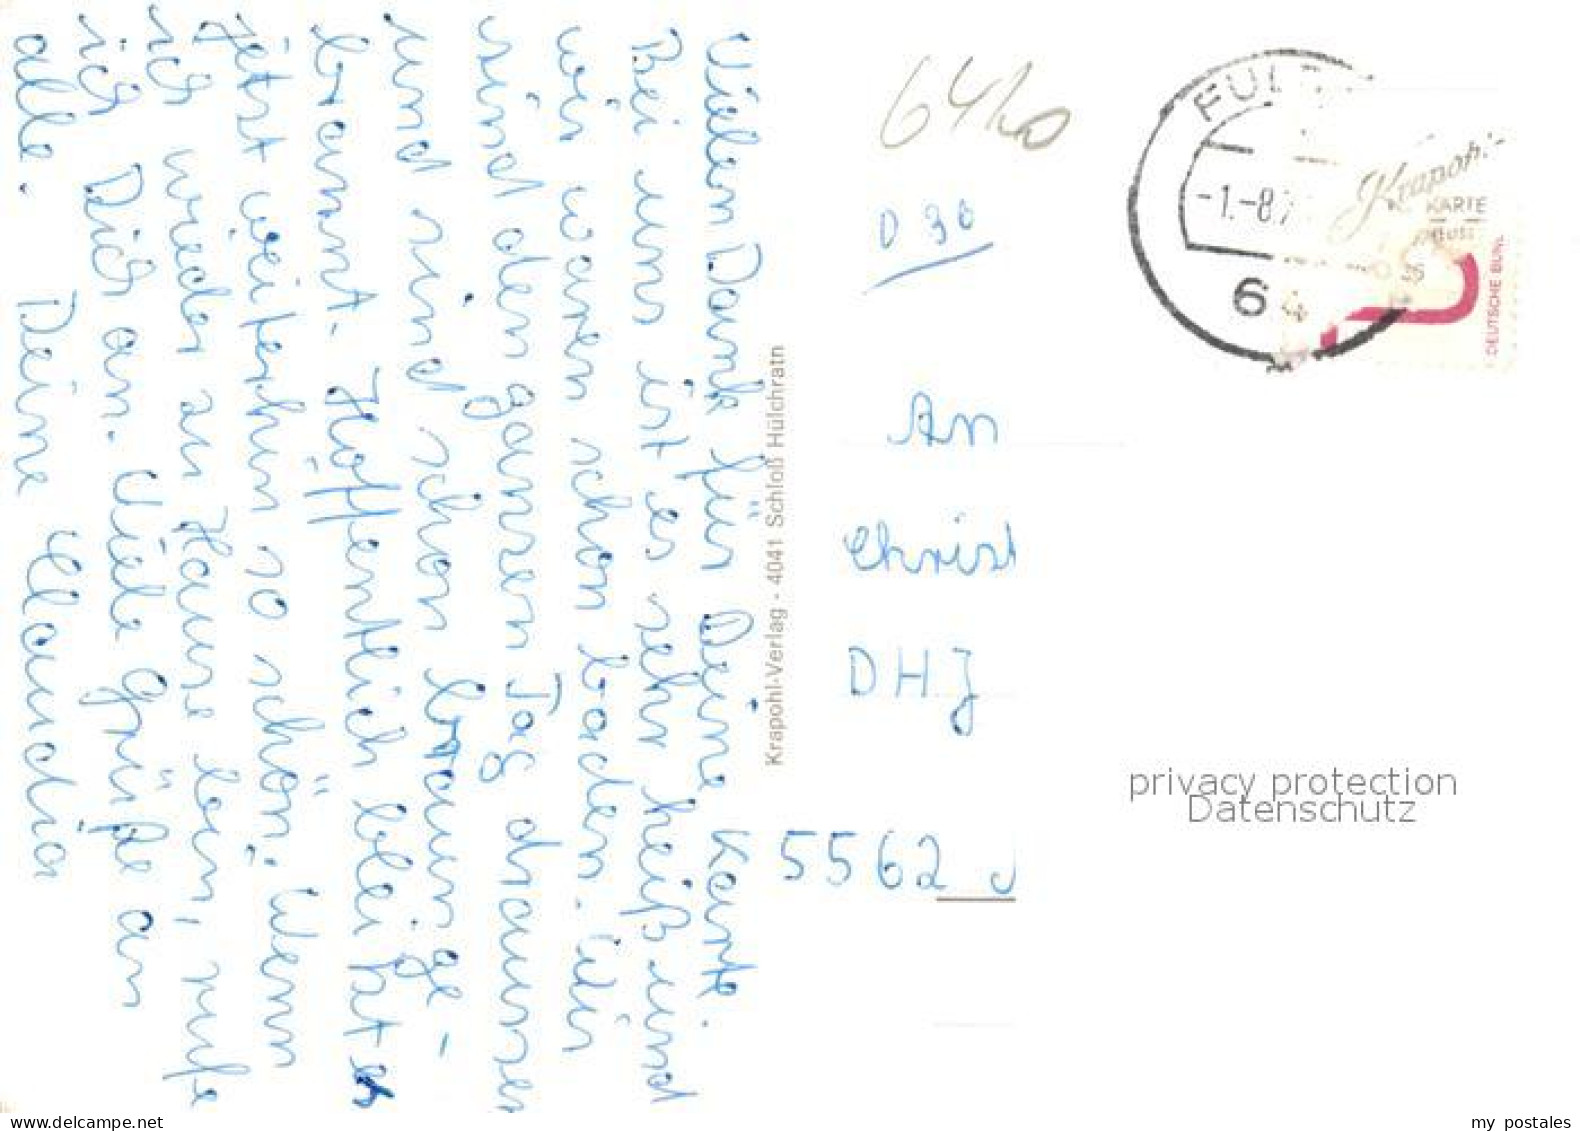 Vielen Dank für Deine Karte.
Bei uns ist es sehr heiß und
wir waren schon baden. Wir
sind den ganzen Tag draussen
und sind schon braun ge-
brannt. Hoffentlich bleibt es
jetzt weiterhin so schön. Wenn
ich wieder zu Hause bin, rufe
ich Dich an. Viele Grüße an
alle. Deine Claudia
Krapohl-Verlag - 4041 Schloß Hülchrath
6410
D 30
FUL
-1.-8.7
6
Krapohl-
KARTE
DEUTSCHE BUN
An
Christ
DHJ
5562
privacy protection
Datenschutz
www.delcampe.net
my postales